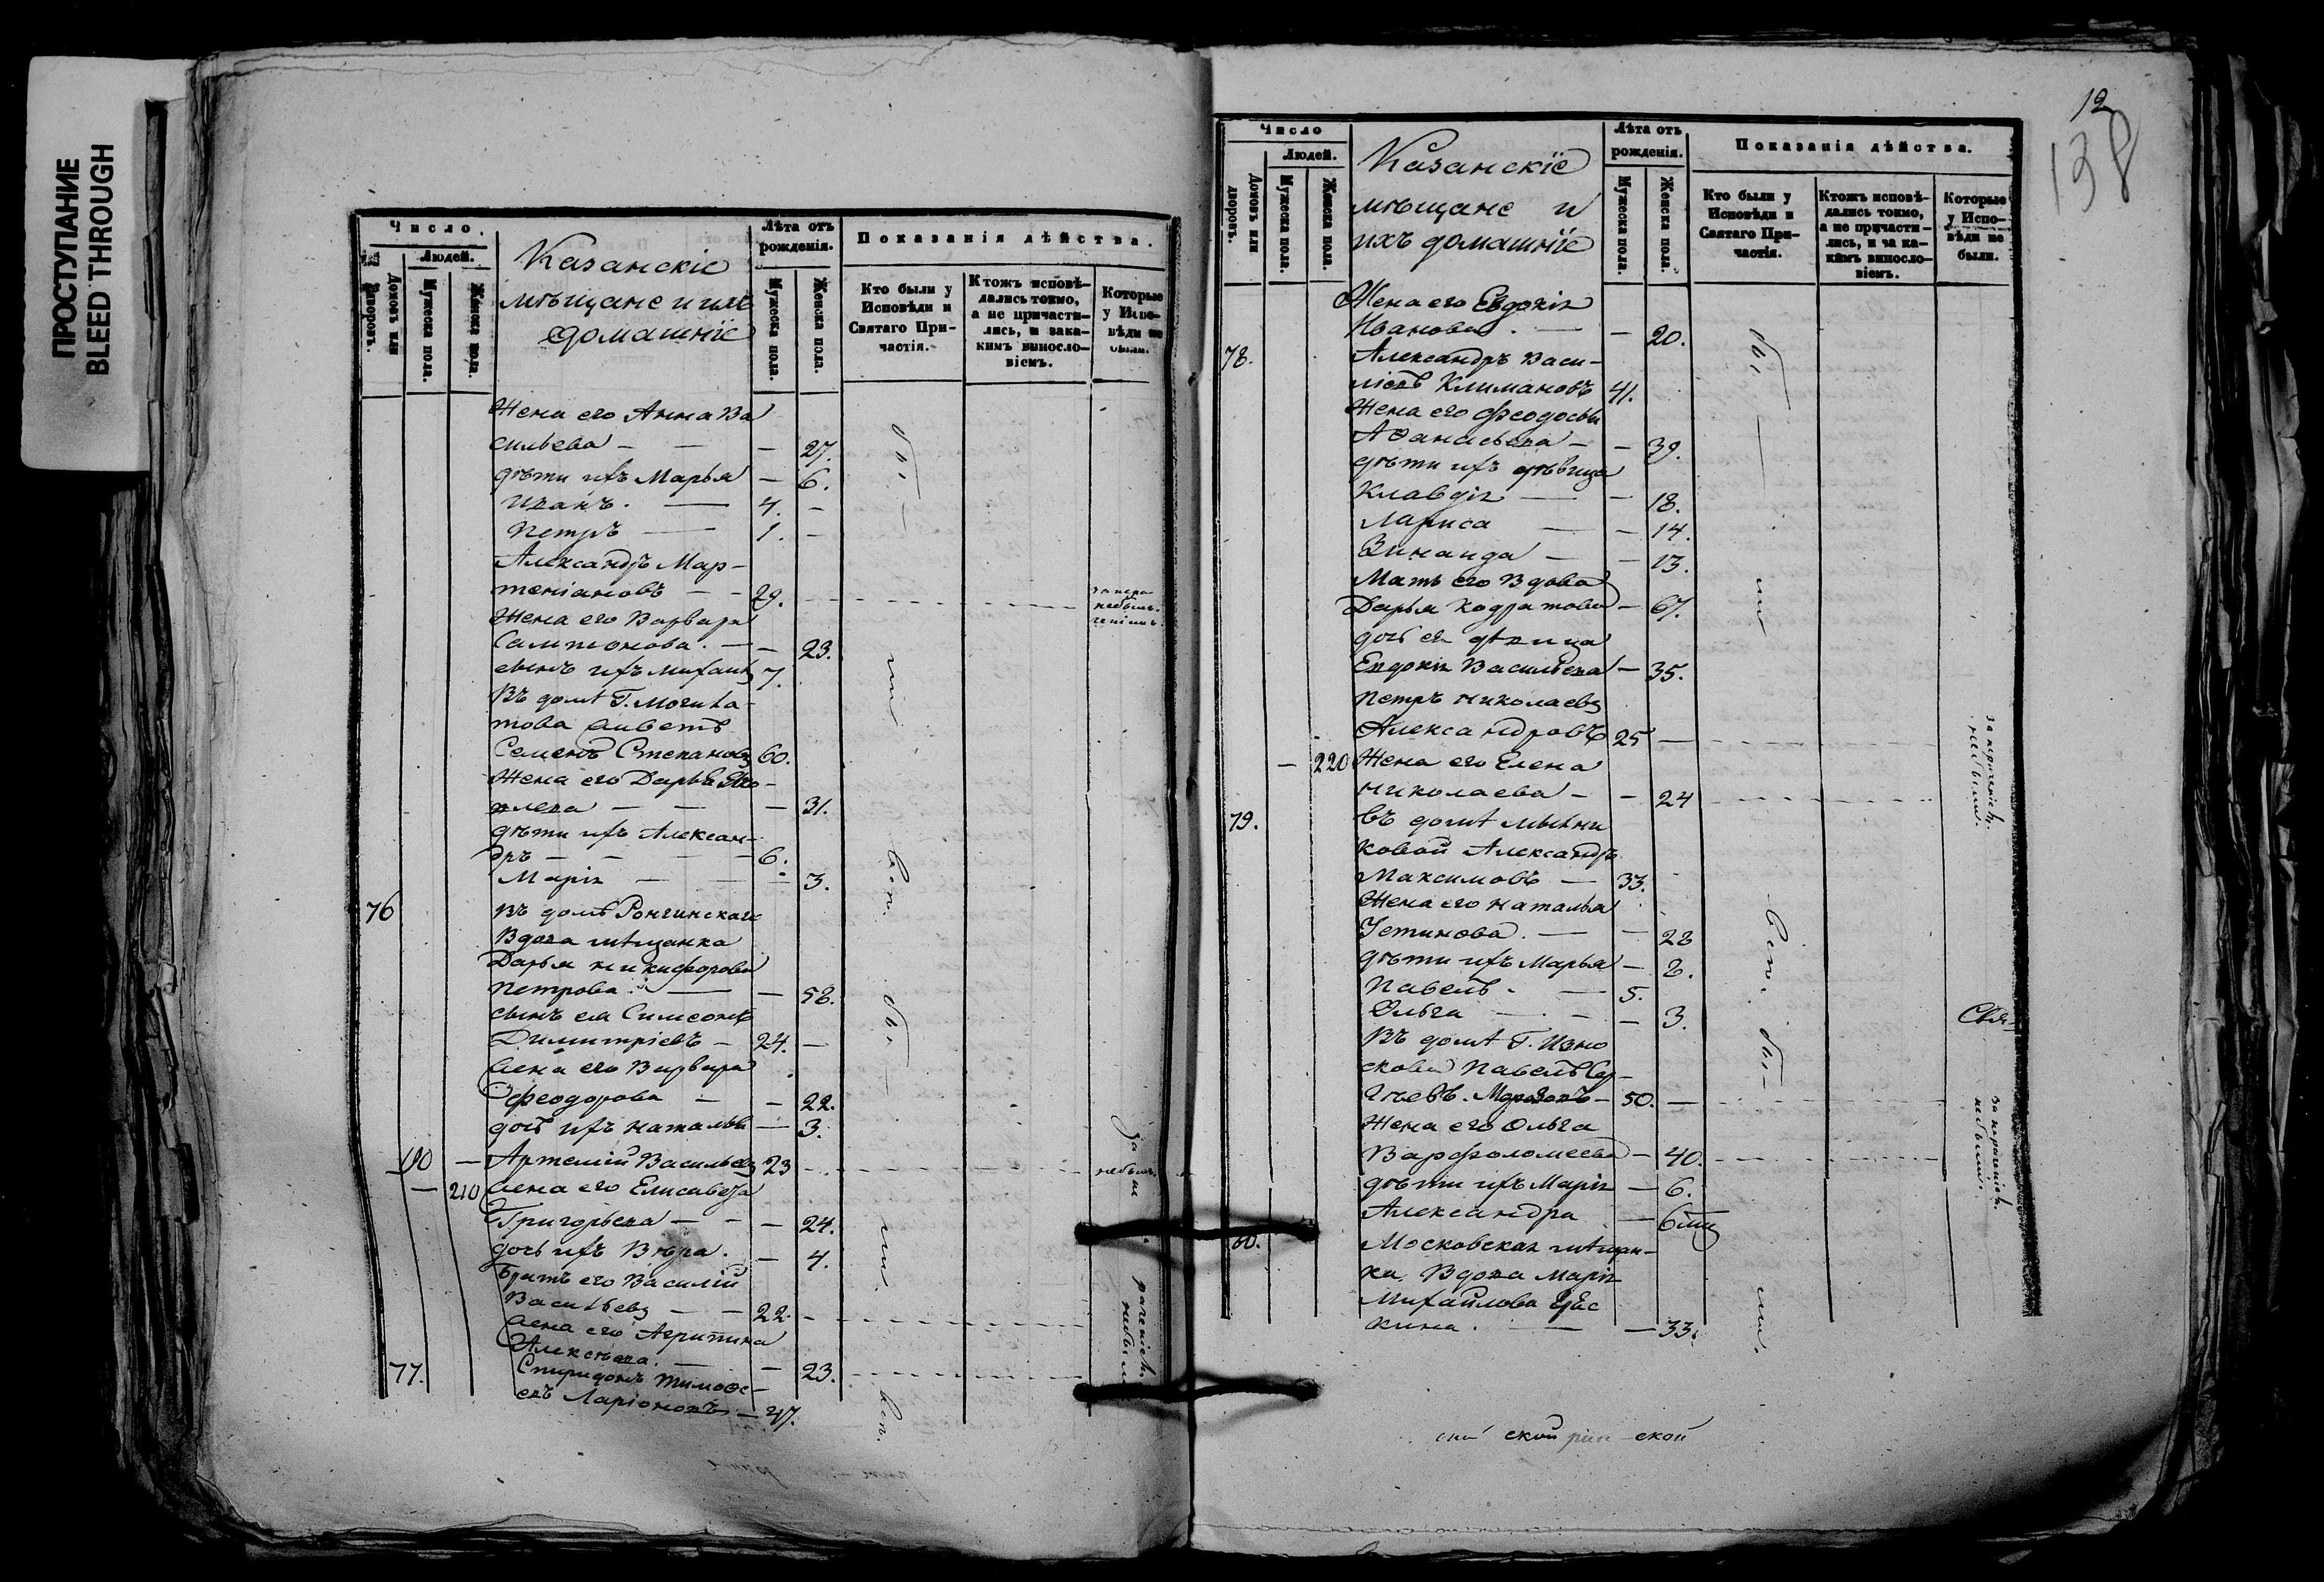 ПРОСТУПАНИЕ
BLEED THROUGH
Число.
Людей.
Домовъ или дворовъ.
Мужеска пола.
Женска пола.
Казанскіе
мѣщане и ихъ
домашніе
Лѣта отъ
рожденія.
Мужеска пола.
Женска пола.
Показанія дѣйства.
Кто были у
Исповѣди и
Святаго При-
частія.
Ктожъ исповѣ-
дались токмо,
а не причасти-
лись, и зака-
кимъ винсло-
віемъ.
Которые
у Испо-
вѣди не
были.
Жена его Анна Ва
сильева — — — 27.
дѣти ихъ Марья — 6.
Иванъ. — 4. –
Петръ — 1. –
Александръ Мар-
теніановъ — – 29.
Жена его Варвара
Сампсонова. — – 23.
сынъ ихъ Михаилъ 7.
Въ домѣ Г.
Семенъ Степановъ 60.
Жена его Дарья
— — — 31.
дѣти ихъ Алексан-
дръ — — — 6.
Марія — — — 3.
76 Въ домѣ Рончинскаго
Вдова мѣщанка
Дарья Никифорова
Петрова. — — 58.
сынъ ея Симеонъ
Димитріевъ – 24. –
Жена его Варвара
Феодорова — – 22.
дочь ихъ Наталья — 3.
190 — Артемій Васильевъ 23
— 210 Жена его Елисавета
Григорьева — – – 24.
дочь ихъ Вѣра. – 4.
Братъ его Василій
Васильевъ — – 22.
Жена его Агрипина
Алексѣева. — – 23.
77. Спиридонъ Тимофе-
евъ Ларіоновъ. — 47.
были
вси.
были
вси.
12
138
Число
Людей.
Домовъ или дворовъ.
Мужеска пола.
Женска пола.
Казанскіе
мѣщане и
ихъ домашніе
Лѣта отъ
рожденія.
Мужеска пола.
Женска пола.
Показанія дѣйства.
Кто были у
Исповѣди и
Святаго При-
частія.
Ктожъ исповѣ-
дались токмо,
а не причасти-
лись, и за ка-
кимъ винсло-
віемъ.
Которые
у Испо-
вѣди не
были.
Жена его Евдокія
Иванова. — – 20.
78. Александръ Васи-
ліевъ Климановъ 41.
Жена его Феодосья
Аѳанасьева – – 39.
дѣти ихъ дѣвица
Клавдія — – 18.
Лариса — – 14.
Зинаида — – 13.
Мать его Вдова
Дарья Кодратова – 67.
дочь ея дѣвица
Евдокія Васильева – 35.
Петръ Николаевъ
Александровъ 25 —
— 220 Жена его Елена
Николаева – – 24
79. Въ домѣ Мыльни
ковой Александръ
Максимовъ — 33.
Жена его Наталья
Устинова. — – 28
дѣти ихъ Марья – 8.
Павелъ – — 5.
Ольга — – – 3.
Въ домѣ Г. Изно
скова Павелъ Сер-
гѣевъ. Морозовъ – 50. —
Жена его Ольга
Варфоломеева – 40.
дѣти ихъ Марія — 6.
Александра — 6 мц
80. Московская мѣщан-
ка Вдова Марія
Михайлова
кина. — — 33.
были
вси.
были
за нераченіемъ
не были.
Свя-
за нераченіемъ
не были.
ской ской